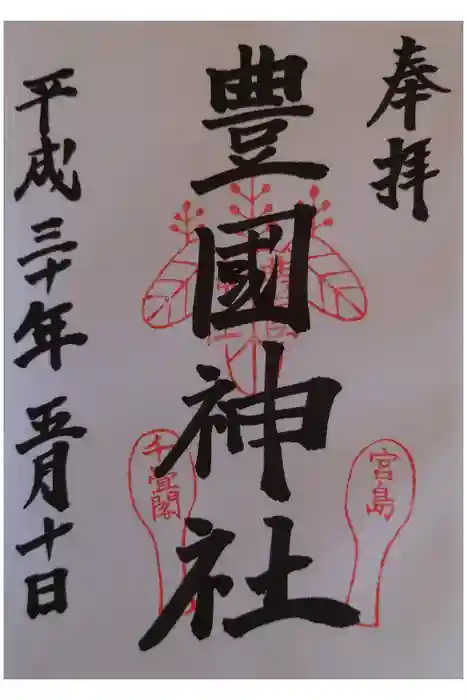 奉拝
豊國神社
宮島
千畳閣
平成三十年五月十日